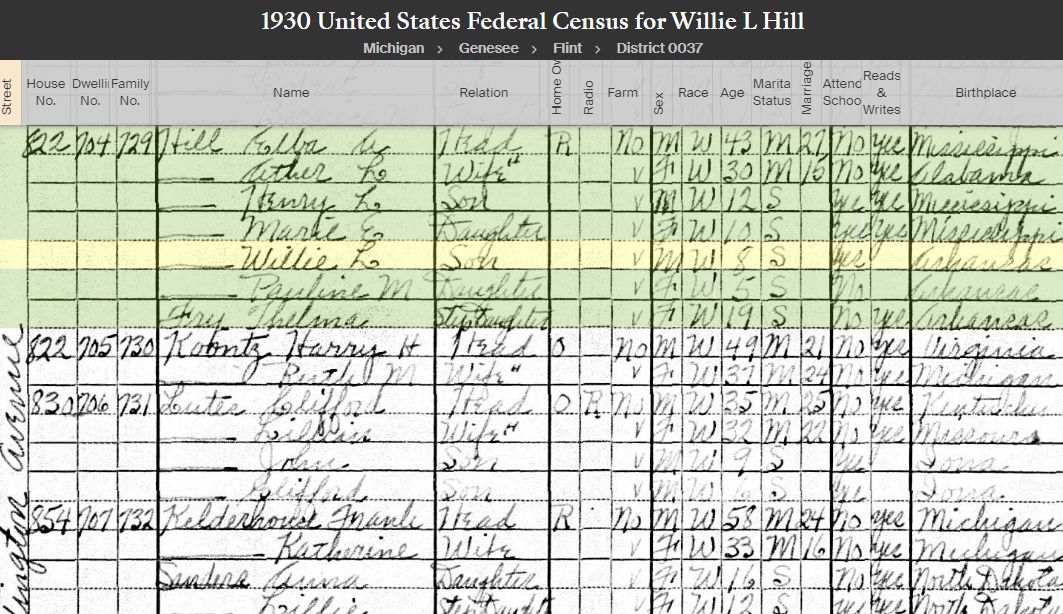 1930 United States Federal Census for Willie L Hill
Michigan > Genesee > Flint > District 0037
Street House No. Dwelli No. Family No. Name Relation Home Ow Radio Farm Sex Race Age Marita Status Marriage Attend Schoo Reads & Writes Birthplace
822 704 729 Hill Elba A Head R No M W 43 M 27 No yes Mississippi
Wife H v F W 30 M 15 No yes Alabama
Henry L Son v M W 12 S yes yes Mississippi
Marie E Daughter v F W 10 S yes yes Mississippi
Willie L Son v M W 8 S yes Arkansas
Pauline M Daughter v F W 5 S No Arkansas
Fry Thelma Stepdaughter v F W 19 S No yes Arkansas
822 705 730 Koontz Harry H Head O No M W 49 M 21 No yes Virginia
Ruth M Wife H v F W 37 M 24 No yes Michigan
830 706 731 Lutes Clifford Head O R No M W 35 M 25 No yes Kentucky
Lillian Wife H v F W 32 M 22 No yes Missouri
John Son v M W 9 S yes Iowa
Clifford Son v M W 6 S yes Iowa
854 707 732 Kelderhouse Head R No M W 58 M 24 No yes Michigan
Katherine Wife v F W 33 M 16 No yes Michigan
Sanders Anna Daughter v F W 16 S No yes North Dakota
Lillie v F W 12 S North Dakota